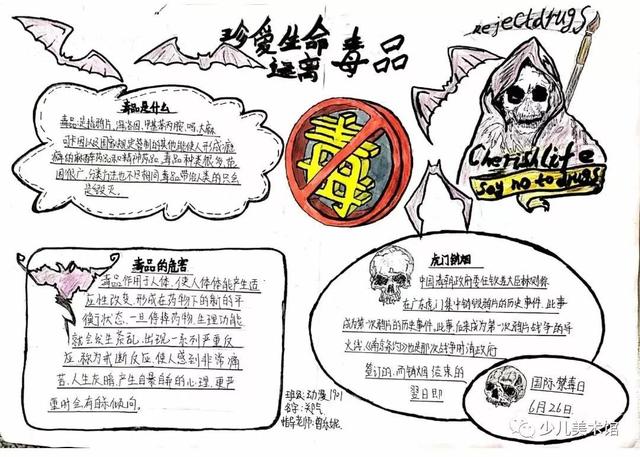 珍爱生命
远离毒品
rejectdrugs
毒品是什么
毒品是指鸦片,海洛因,甲基苯丙胺,吗,大麻
可卡因以及国家规定管制的其他能使人形成瘾
癖的麻醉药品和精神药品。毒品种类很多,范
围很广,分类方法也不尽相同,毒品带给人类的只会
是毁灭。
毒
Cherishlife
say no to drugs
毒品的危害
毒品作用于人体,使人体体能产生适
应性改变,形成在药物下的新的平
衡状态。一旦停掉药物,生理功能
就会发生紊乱,出现一系列严重反
应,称为戒断反应,使人感到非常痛
苦。人生灰暗,产生自暴自弃的心理,更严
重时会有自杀倾向。
虎门销烟
中国清朝政府委任钦差大臣林则徐
在广东虎门集中销毁鸦片的历史事件,此事
成为第一次鸦片的历史事件,此事后来成为第一次鸦片战争的导
火线,《南京条约》也是那次战争时清政府
签订的,而销烟结束的
翌日即
国际禁毒日
6月26日
班级:动漫1901
名字:
指导老师:
少儿美术馆